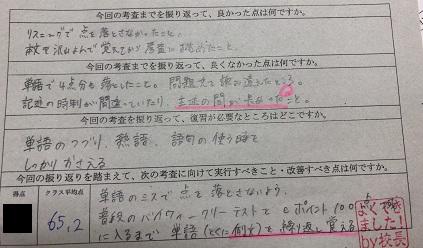 今回の考査までを振り返って、良かった点は何ですか。
リスニングで点を落とさなかったこと。
今回の考査までを振り返って、良くなかった点は何ですか。
単語で4点分も落としたこと。問題文を読み違えたところ。
記述の時制が間違っていたり、主述の間が
今回の考査を振り返って、復習が必要なところはどこですか。
単語のつづり、熟語、語句の使い時を
しっかりおさえる
今回の振り返りを踏まえて、次の考査に向けて実行すべきこと・改善すべき点は何ですか。
得点
クラス平均点
65.2
単語のミスで点を落とさないよう、
普段のバイウィークリーテストやeポイント100
に入るまで単語(とくに例文)を繰り返し覚える
よくでき
ました!
by校長